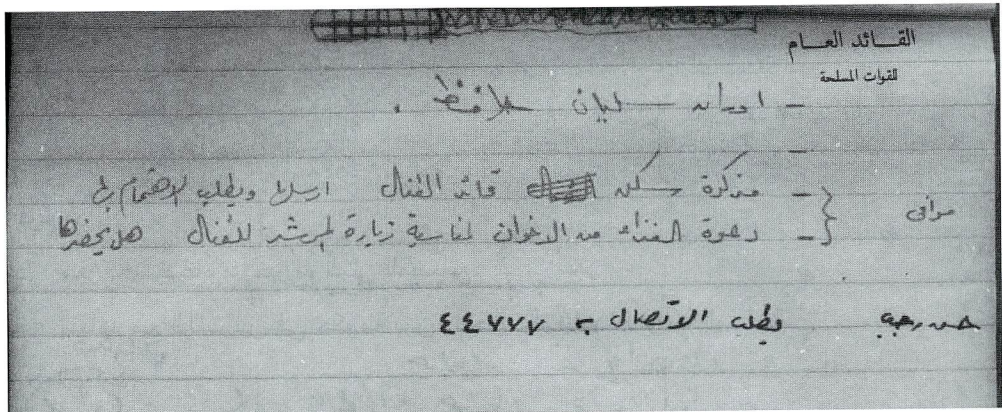 القائد العام
للقوات المسلحة
- اوراق سليمان حافظ .
-
- مذكرة سكن قائد القنال ارسلها ويطلب الاهتمام بها
- دعوة الغذاء من الاخوان لمناسبة زيارة المرشد للقنال هل يحضرها
يطلب الاتصال بـ ٤٤٧٧٧